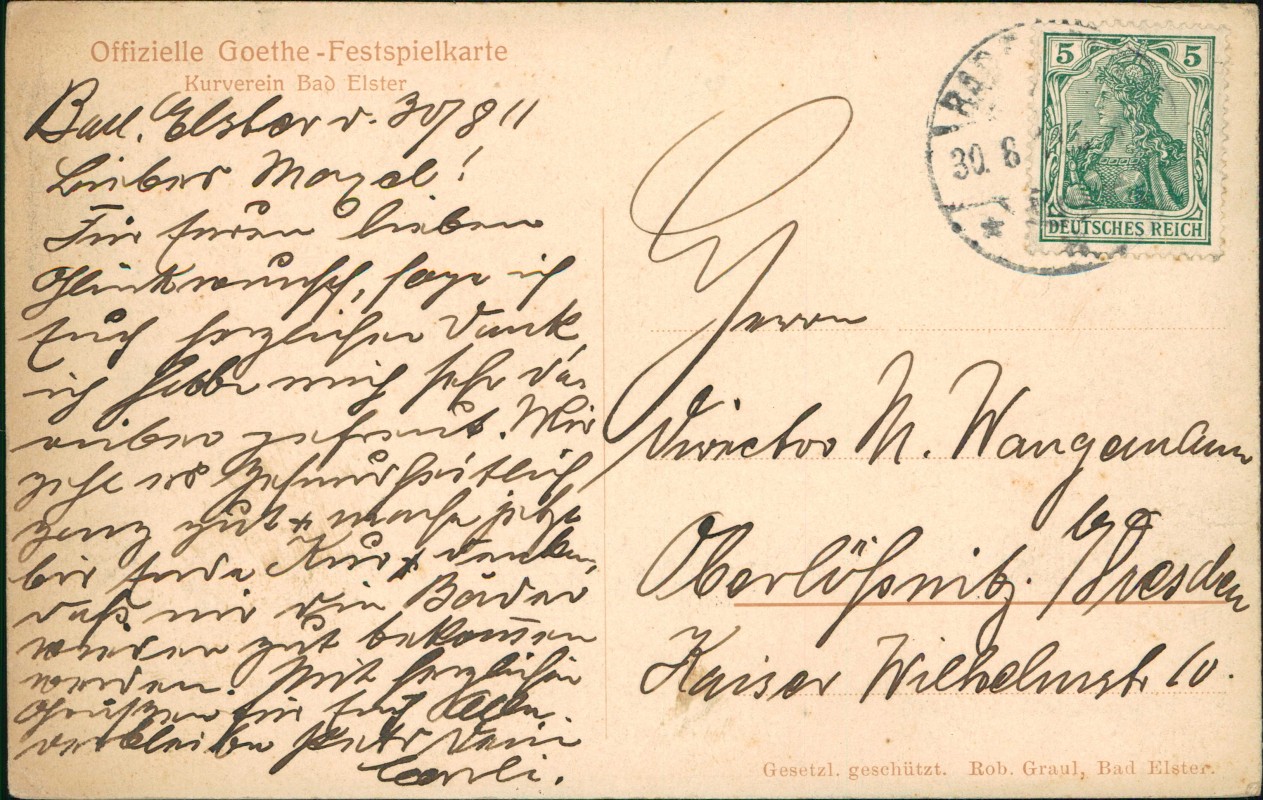 Offizielle Goethe-Festspielkarte
Kurverein Bad Elster
Bad. Elster d. 30/8 11
Lieber Mazel!
Für Euren lieben
Glückwunsch, sage ich
Euch herzlichen Dank
ich habe mich sehr da-
rüber gefreut. Mir
geht es Gesundheitlich
ganz gut + mache jetzt
hier Ende Kur + denke,
daß mir die Bäder
wieder gut bekommen
werden. Mit herzlichen
Grüßen für Euch Alle
verbleibe stets Dein
Carli.
30. 8
5 5
DEUTSCHES REICH
Herrn
Director M. Wangemann
Oberlößnitz b/Dresden
Kaiser Wilhelmstr 10.
Gesetzl. geschützt. Rob. Graul, Bad Elster.